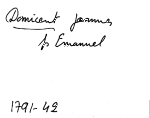 Domicent Joannes
fs Emanuel
1791-42